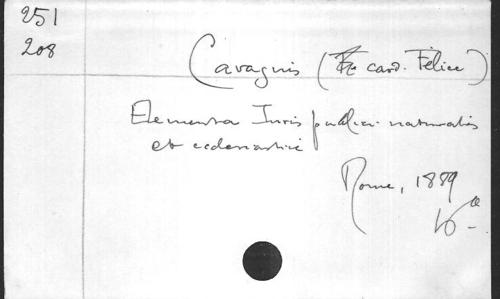 251
208
Cavagnis (Le card. Félice)
Elementa Juris publici naturalis
et ecclesiastici
Rome, 1889